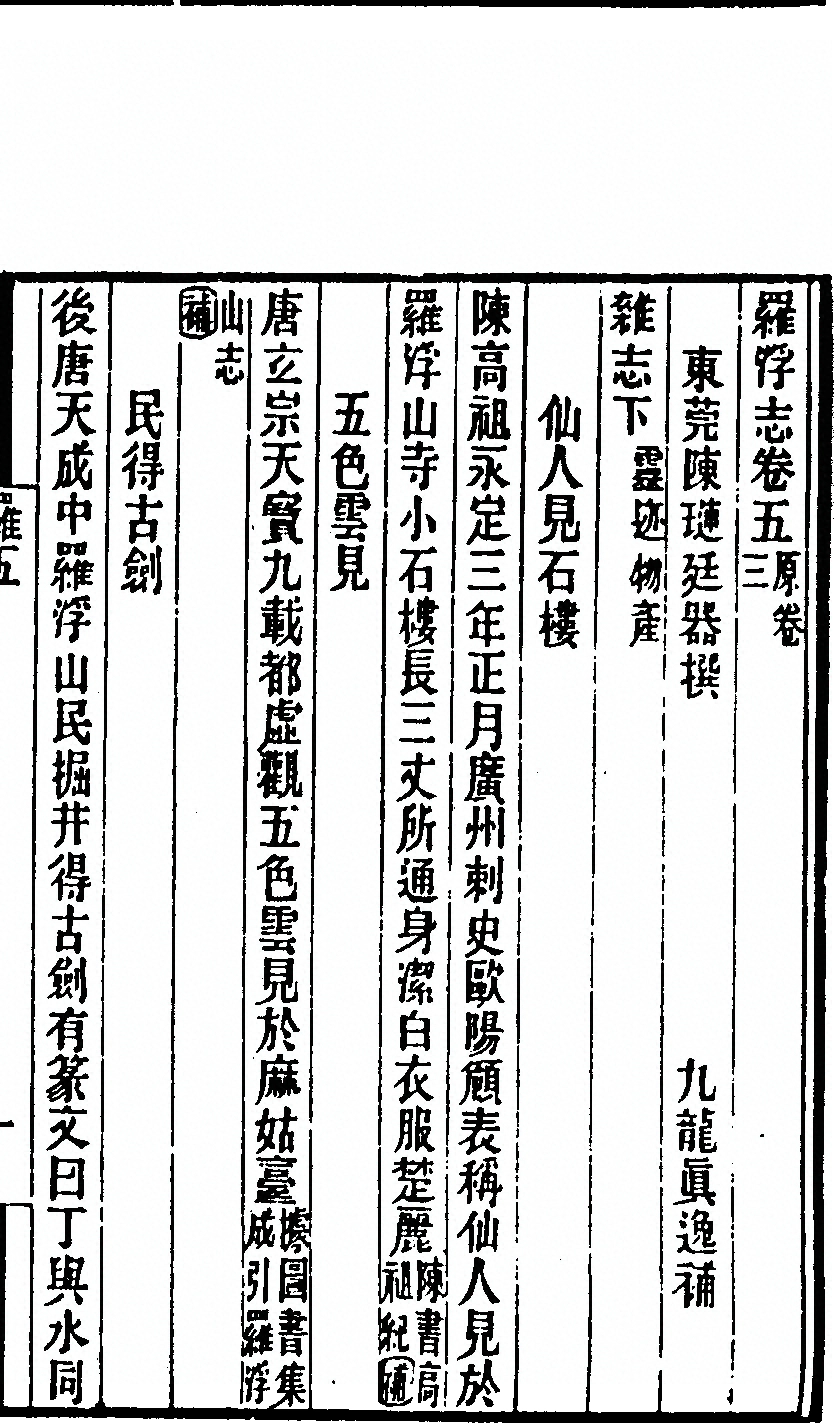 羅浮志卷五原卷三
東莞陳璉廷器撰　九龍眞逸補
雜志下靈迹物產
仙人見石樓
陳高祖永定三年正月廣州刺史歐陽頠表稱仙人見於
羅浮山寺小石樓長三丈所通身潔白衣服楚麗陳書高祖紀補
五色雲見
唐玄宗天寶九載都虛觀五色雲見於麻姑臺據圖書集成引羅浮
山志補
民得古劍
後唐天成中羅浮山民掘井得古劍有篆文曰丁與水同
羅五
一